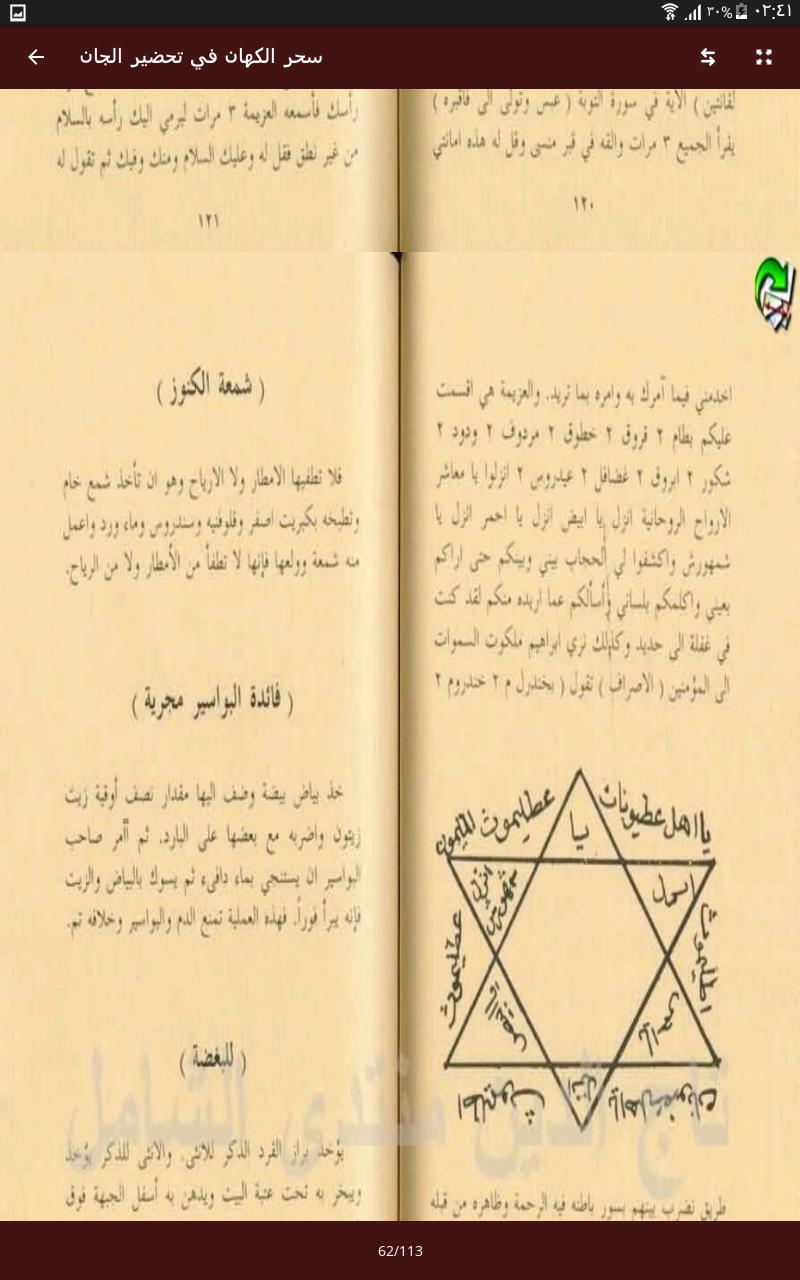 ٠٢:٤١ ٣٠%
سحر الكهان في تحضير الجان
لقانتين ) الآية في سورة التوبة ( عبس وتولى الى فاقبره )
يقرأ الجميع ٣ مرات والقه في قبر منسى وقل له هذه امانتي
١٢٠
رأسك فأسمعه العزيمة ٣ مرات ليرمي اليك رأسه بالسلام
من غير نطق فقل له وعليك السلام ومنك وفيك ثم تقول له
١٢١
اخدمني فيما آمرك به وامره بما تريد. والعزيمة هي اقسمت
عليكم بطام ٢ قروق ٢ خطوق ٢ مردوف ٢ ودود ٢
شكور ٢ ابروق ٢ غضافل ٢ عيدروس ٢ انزلوا يا معاشر
الارواح الروحانية انزل يا ابيض انزل يا احمر انزل يا
شمهورش واكشفوا لي الحجاب بيني وبينكم حتى اراكم
بعيني واكلمكم بلساني وأسألكم عما اريده منكم لقد كنت
في غفلة الى حديد وكذلك نري ابراهيم ملكوت السموات
الى المؤمنين ( الاصراف ) تقول ( بخندرل م ٢ خندروم ٢
يا اهل عطيونات
عطليموث
يا
انزل
طريق تضرب بينهم بسور باطنه فيه الرحمة وظاهره من قبله
( شمعة الكنوز )
فلا تطفيها الامطار ولا الارياح وهو ان تأخذ شمع خام
وتطبخه بكبريت اصفر وقلوفنيه وسندروس وماء ورد واعمل
منه شمعة وولعها فإنها لا تطفأ من الأمطار ولا من الرياح.
( فائدة البواسير مجربة )
خذ بياض بيضة وضف اليها مقدار نصف أوقية زيت
زيتون واضربه مع بعضها على البارد. ثم أأمر صاحب
البواسير ان يستنجي بماء دافىء ثم يسوك بالبياض والزيت
فإنه يبرأ فوراً. فهذه العملية تمنع الدم والبواسير وخلافه تم.
( للبغضة )
يؤخذ براز القرد الذكر للانثى. والانثى للذكر يؤخذ
ويبخر به تحت عتبة البيت ويدهن به أسفل الجبهة فوق
منتدى الشامل
62/113